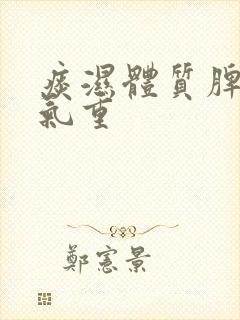 痰濕體質脾
氣重
鄭憲景